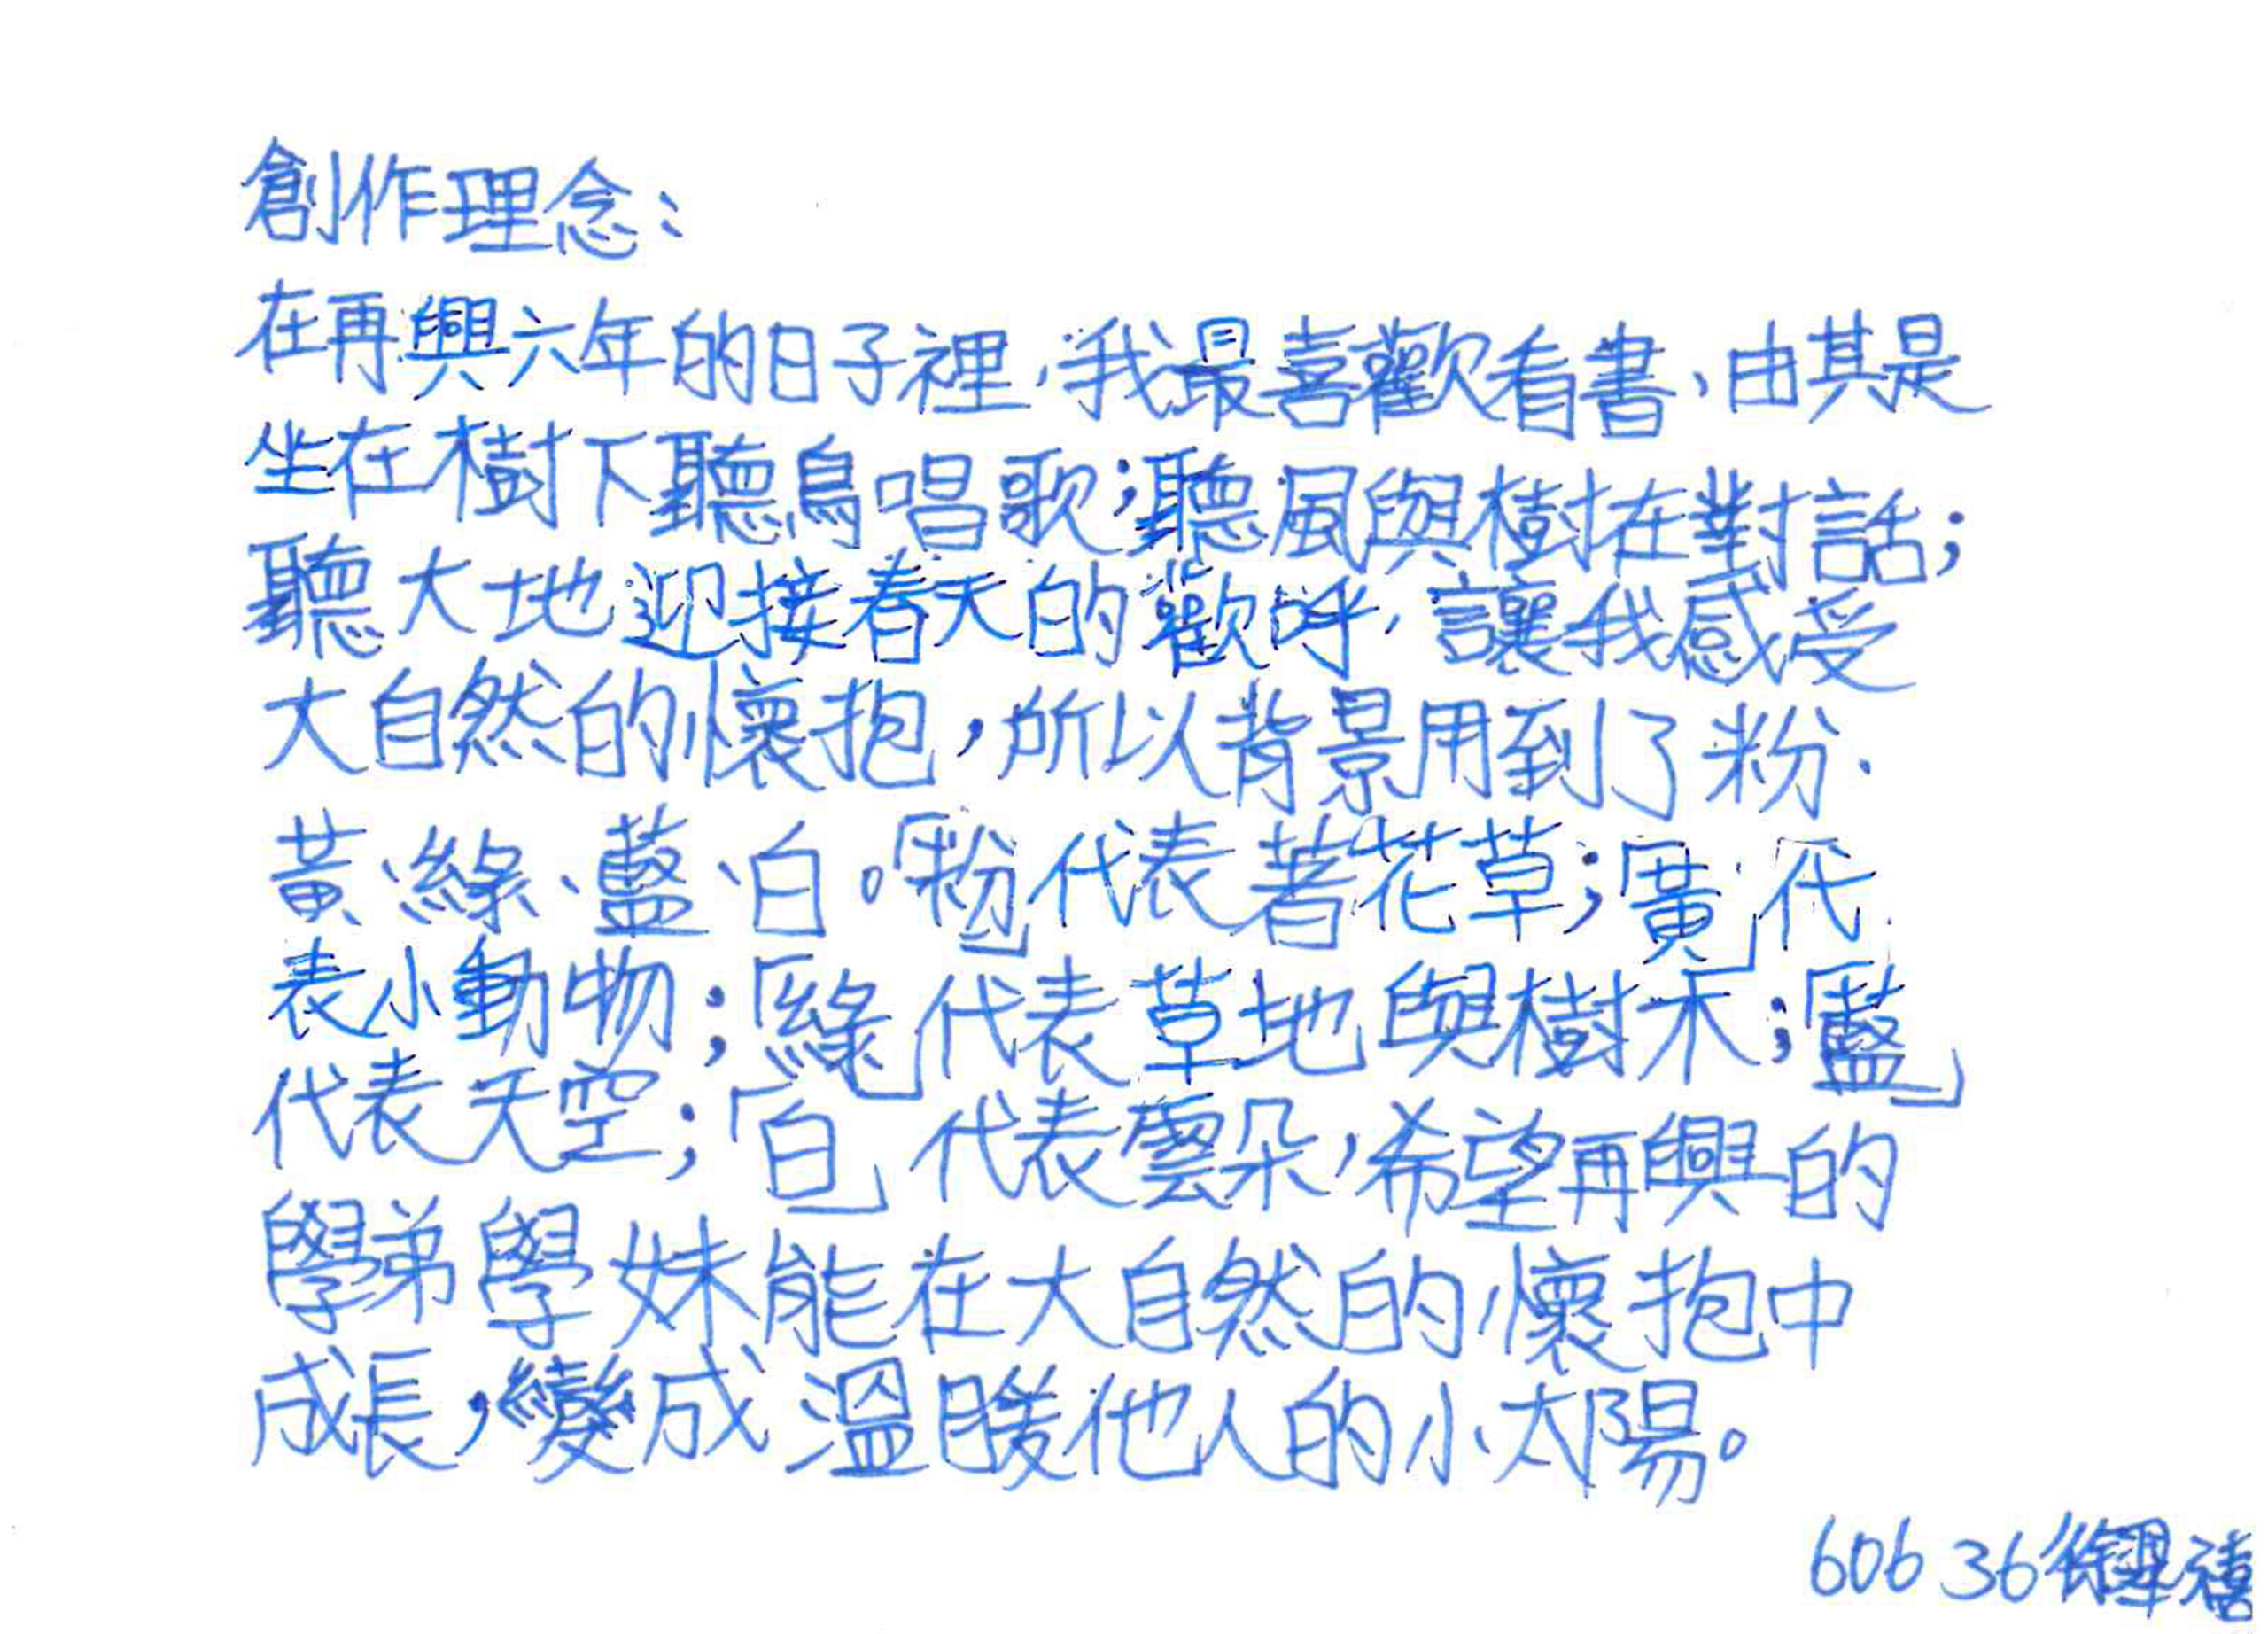 創作理念：
在再興六年的日子裡，我最喜歡看書，由其是
坐在樹下聽鳥唱歌；聽風與樹在對話；
聽大地迎接春天的歡呼，讓我感受
大自然的懷抱，所以背景用到了粉、
黃、綠、藍、白。「粉」代表著花草；「黃」代
表小動物；「綠」代表草地與樹木；「藍」
代表天空；「白」代表雲朵，希望再興的
學弟學妹能在大自然的懷抱中
成長，變成溫暖他人的小太陽。
606 36 徐禧